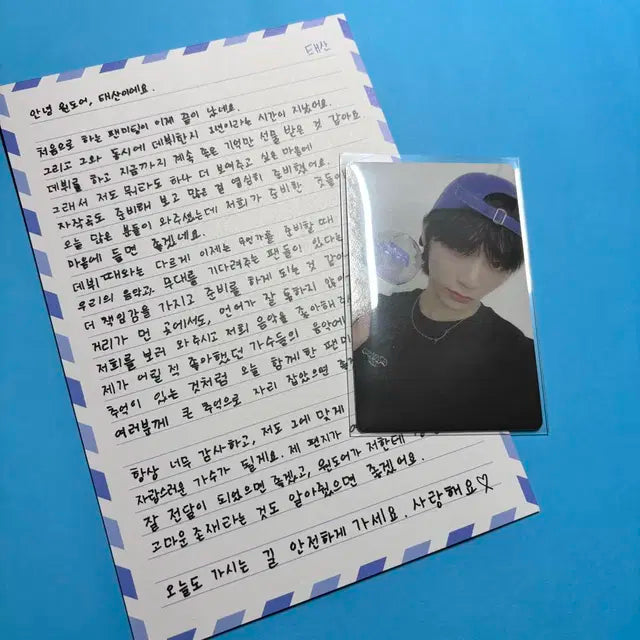 태산
안녕 원도어, 태산이에요.
처음으로 하는 팬미팅이 이제 끝이 났네요.
그리고 그와 동시에 데뷔한지 1년이라는 시간이 지났어요.
데뷔를 하고 지금까지 계속 좋은 기억만 선물 받은 것 같아요
그래서 저도 뭐라도 하나 더 보여주고 싶은 마음에
자작곡도 준비해 보고 많은 걸 열심히 준비했어요.
오늘 많은 분들이 와주셨는데 저희가 준비한 것들이
마음에 들면 좋겠네요.
데뷔 때와는 다르게 이제는 무언가를 준비할 때
우리의 음악과 무대를 기다려주는 팬들이 있다는
더 책임감을 가지고 준비를 하게 되는 것 같아
거리가 먼 곳에서도, 언어가 잘 통하지 않아
저희를 보러 와주시고 저희 음악을 좋아해
제가 어릴 적 좋아했던 가수들의 음악에
추억이 있는 것처럼 오늘 함께한 팬미
여러분께 큰 추억으로 자리 잡았으면
항상 너무 감사하고, 저도 그에 맞게
자랑스러운 가수가 될게요. 제 편지가
잘 전달이 되었으면 좋겠고, 원도어가 저한테
고마운 존재라는 것도 알아줬으면 좋겠어요.
오늘도 가시는 길 안전하게 가세요. 사랑해요♡